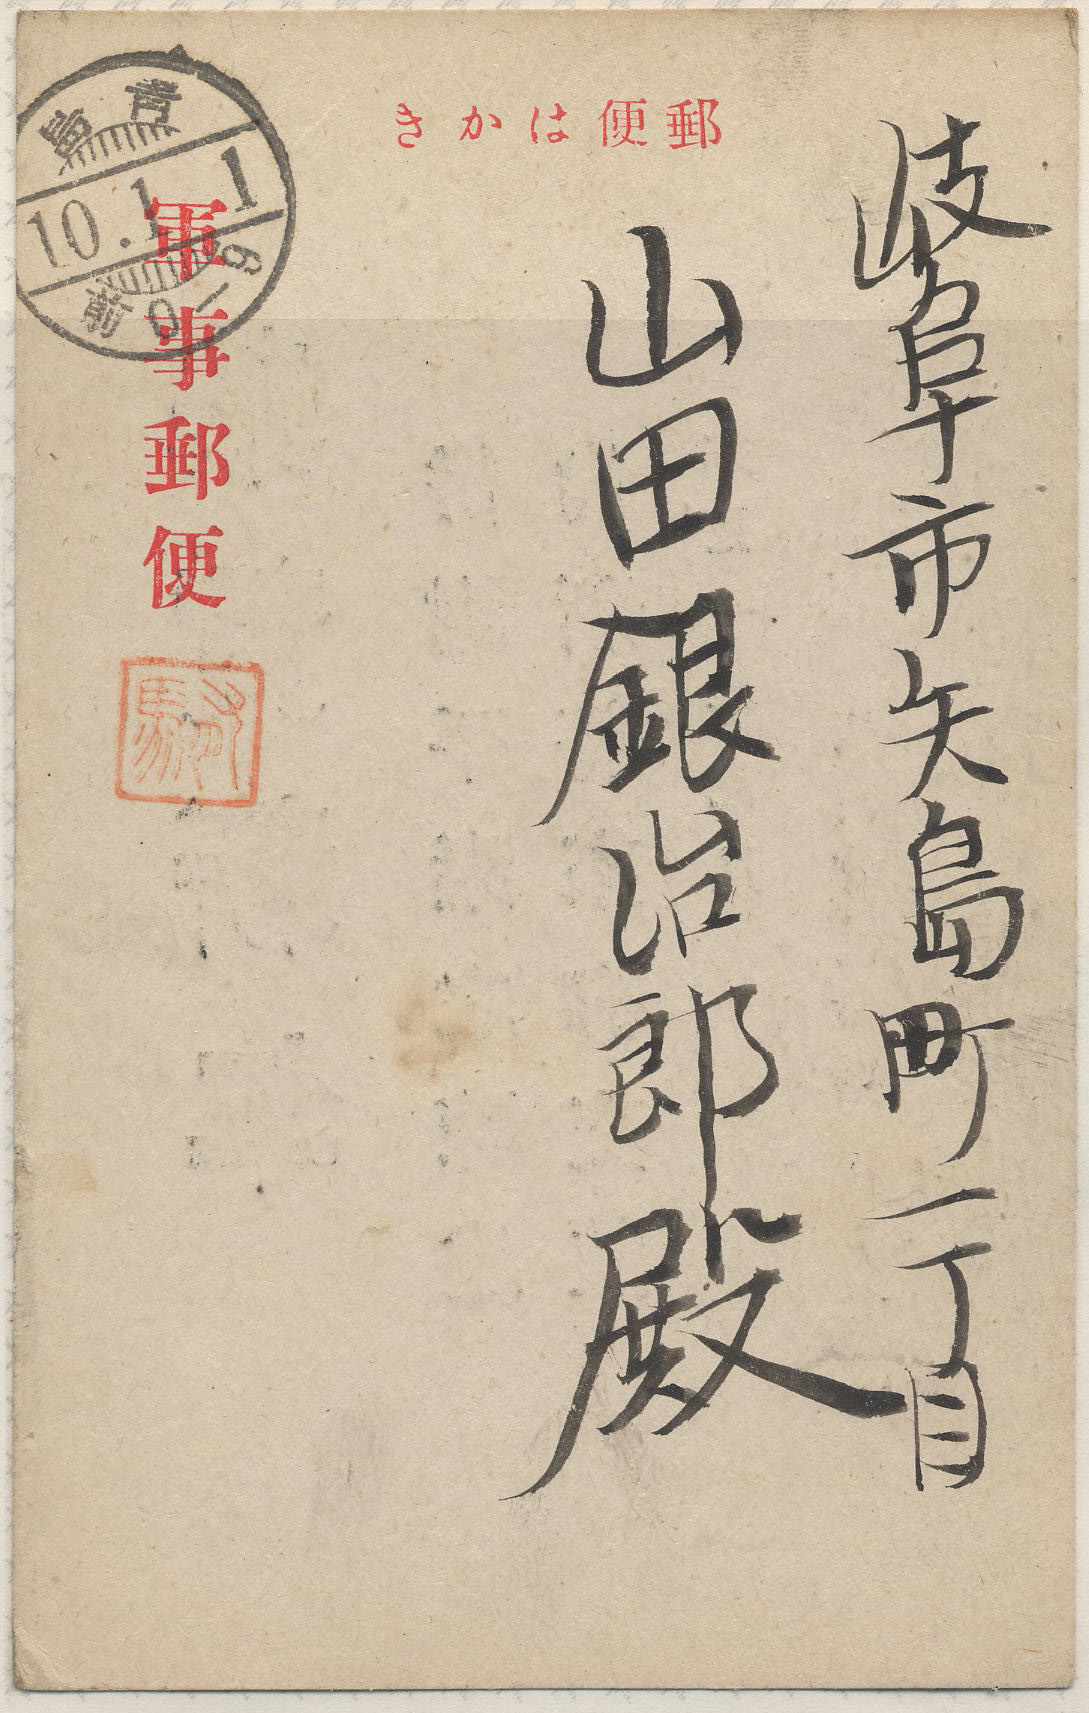 郵便はかき
岐阜市矢島町一丁目
山田銀治郎殿
軍事郵便
10.1.1
前0-9